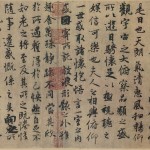 是日也天朗氣清惠風和暢仰
觀宇宙之大俯察品類之盛
所以遊目騁懷足以極視聽之
娛信可樂也夫人之相與俯仰
一世或取諸懷抱悟言一室之內
因寄所託放浪形骸之外雖
趣舍萬殊靜躁不同當其欣
於所遇暫得於己快然自足不
知老之將至及其所之既惓情
隨事遷感慨係之矣向之